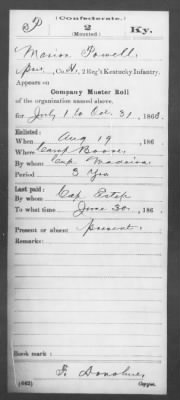 P
(Confederate.)
2
(Mounted)
Ky.
Marion Powell
Priv, Co. H, 2 Reg't Kentucky Infantry.
Appears on
Company Muster Roll
of the organization named above,
for July 1 to Oct. 31, 186
Enlisted:
When Aug 19, 186
Where Camp Boone
By whom Cap
Period 3 Yrs
Last paid:
By whom Cap
To what time June 30, 186
Present or absent present
Remarks:
Book mark:
(642)
Copyist.